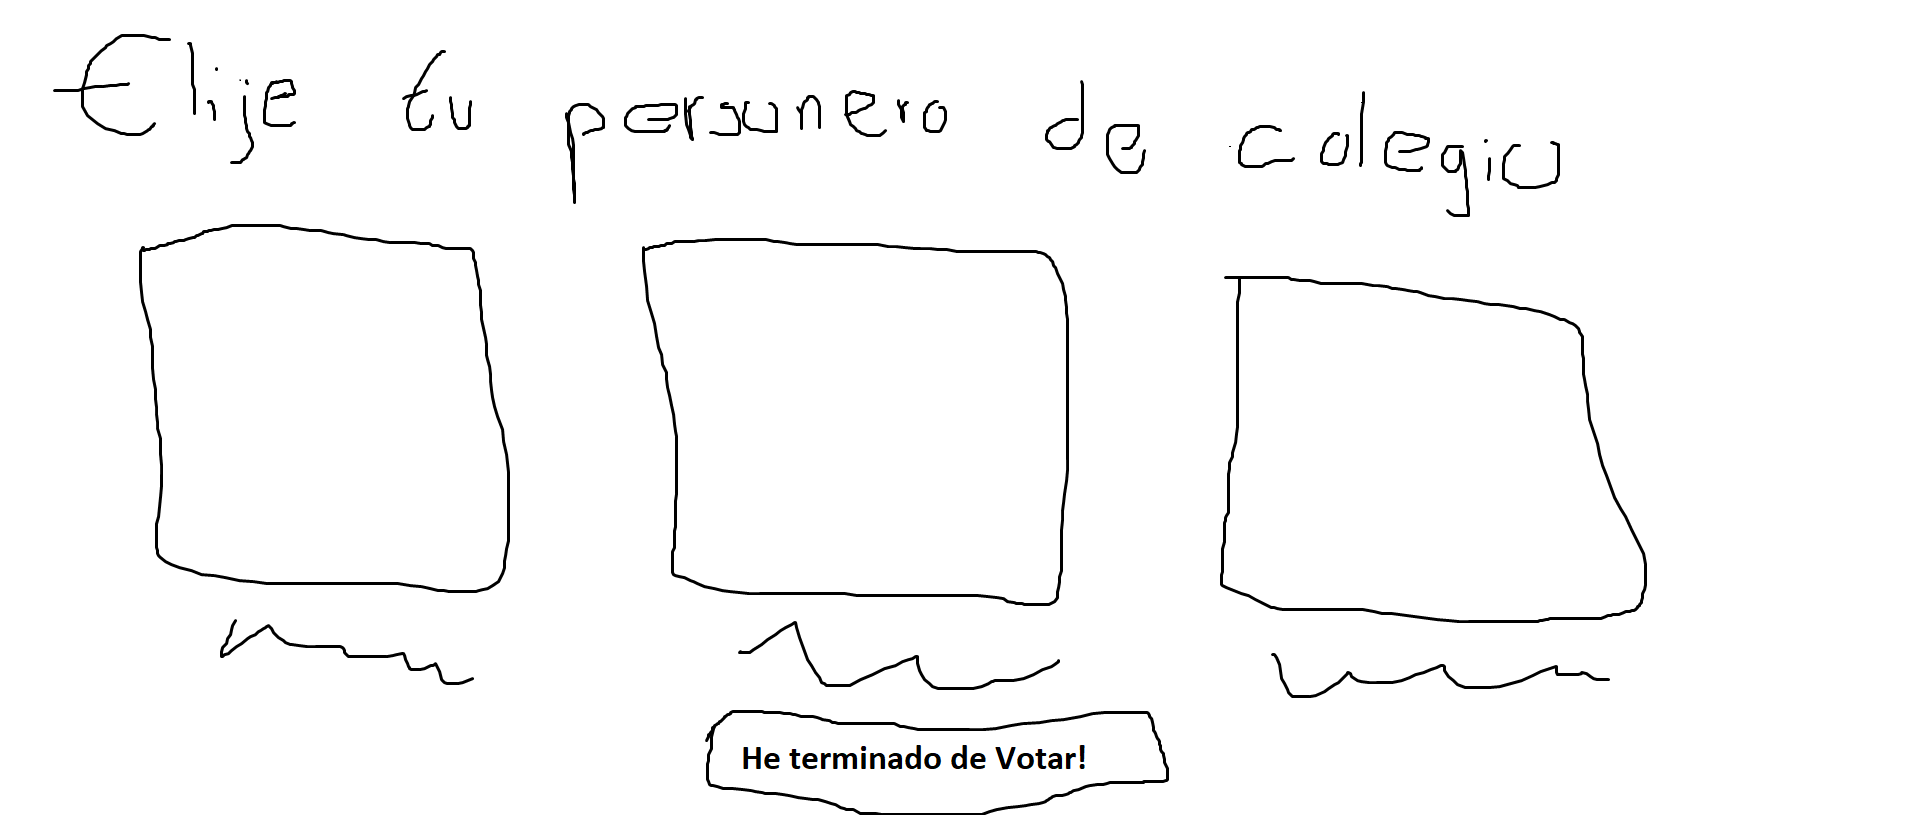 Elije tu personero de colegio
He terminado de Votar!